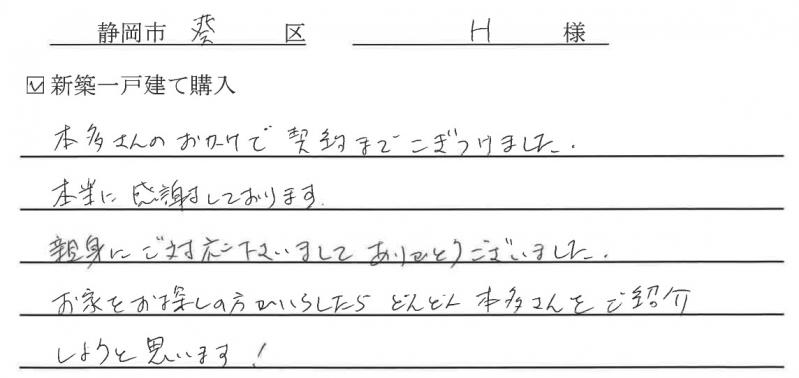 静岡市 葵 区 H 様
☑ 新築一戸建て購入
本多さんのおかげで契約までこぎつけました.
本当に感謝しております.
親身にご対応下さいましてありがとうございました.
お家をお探しの方がいらしたらどんどん本多さんをご紹介
しようと思います!